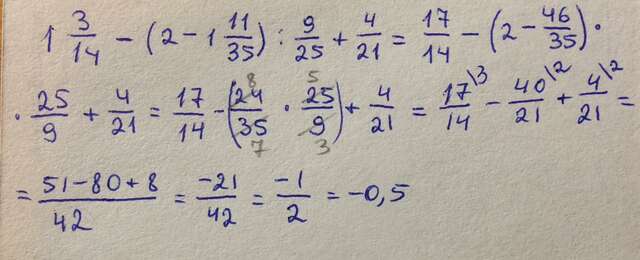 1 3/14 − (2 − 1 11/35) : 9/25 + 4/21 = 17/14 − (2 − 46/35) ·
· 25/9 + 4/21 = 17/14 − (24/35 · 25/9) + 4/21 = 17\3/14 − 40\2/21 + 4\2/21 =
8 5 7 3
= 51−80+8/42 = −21/42 = −1/2 = −0,5